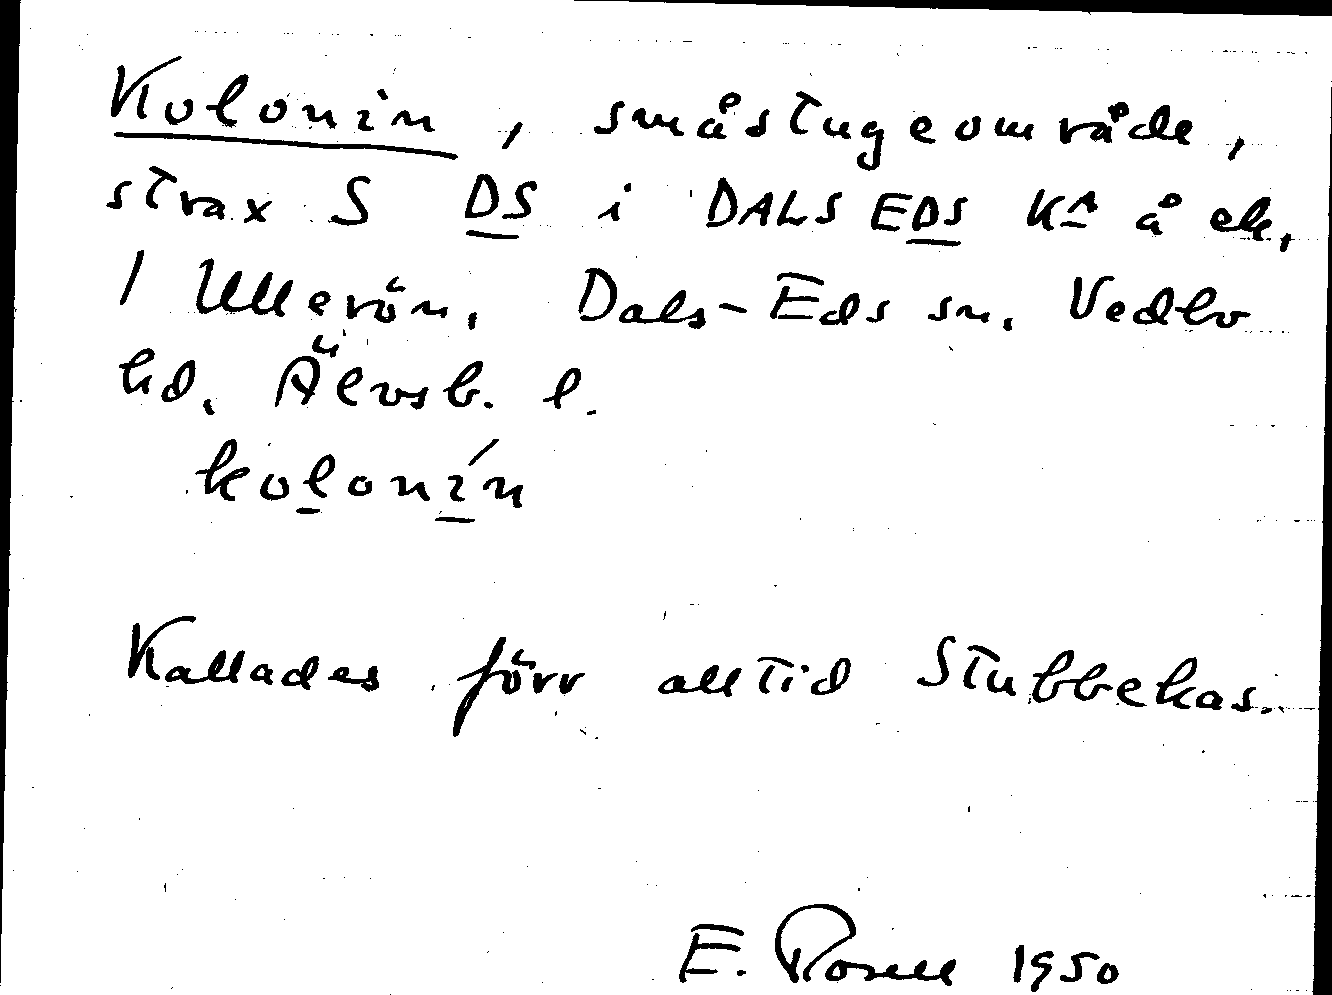 Kolonin, småstugeområde,
strax S DS i DALS EDS KA å ek,
1 Ullerön. Dals-Eds sn. Vedbo
hd. Älvsb. l.
kolonín
Kallades förr alltid Stubbekas.
E. Rosell 1950